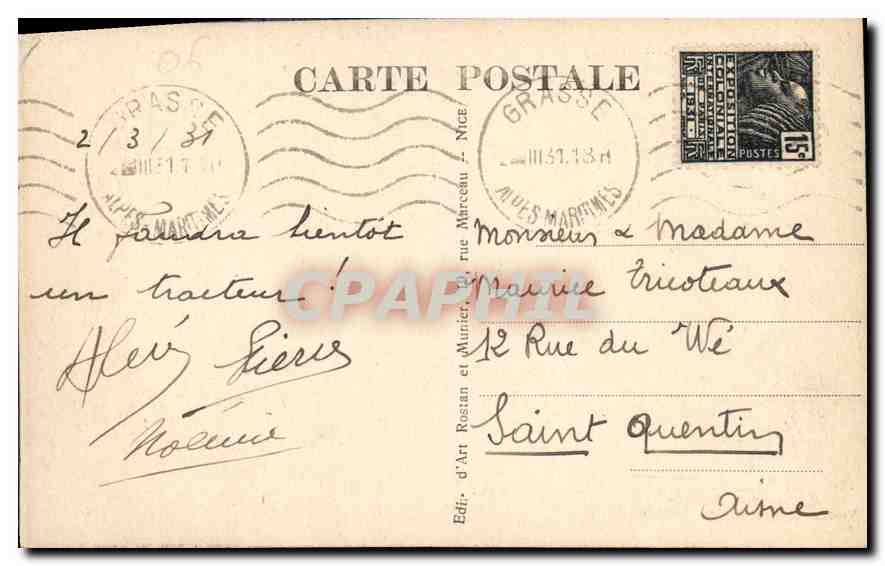 06
CARTE POSTALE
GRASSE
2 / 3 / 31
III31.1
ALPES-MARITIMES
GRASSE
2 III31.18H
ALPES MARITIMES
EXPOSITION
COLONIALE
INTERNATIONALE
PARIS
1931
POSTES
15c
Il faudra bientôt
un tracteur !
Pierre
Noémie
CPAPHIL
Edi: d'Art Rostan et Munier, rue Marceau - NICE
Monsieur & Madame
Maurice Tricoteaux
12 Rue du Wé
Saint Quentin
Aisne